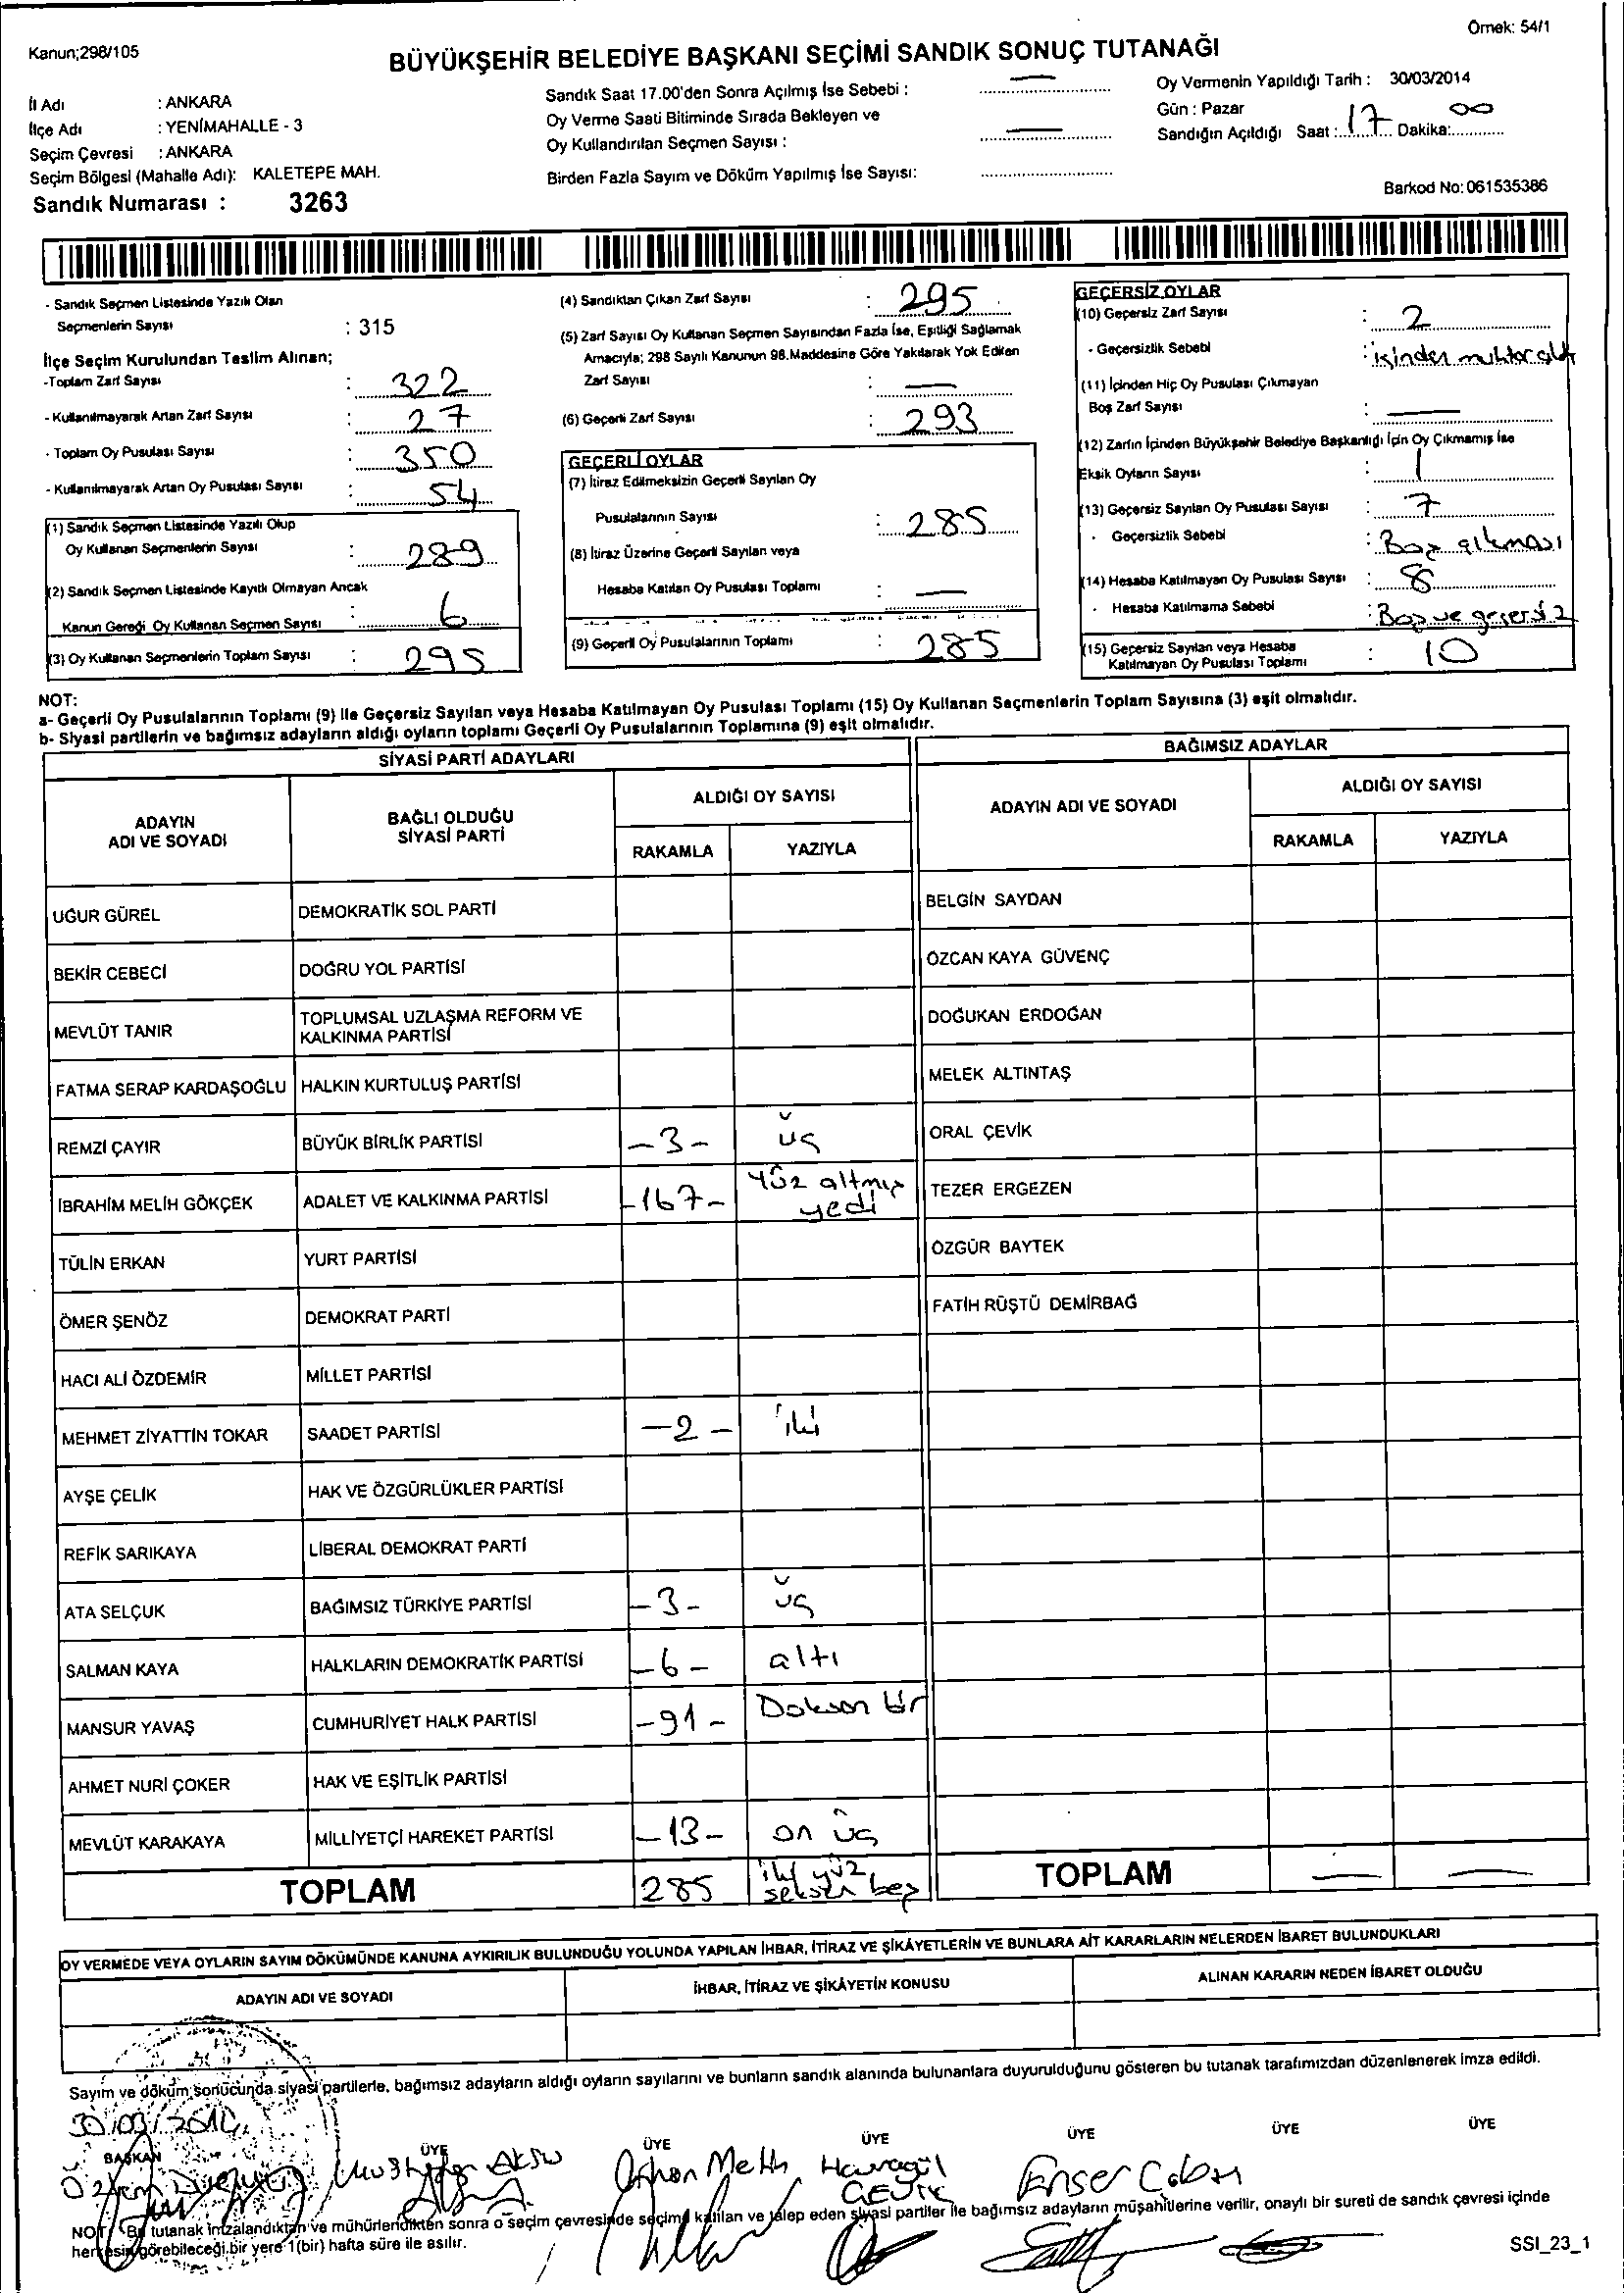 Kanun;298/105
Örnek: 54/1
BÜYÜKŞEHİR BELEDİYE BAŞKANI SEÇİMİ SANDIK SONUÇ TUTANAĞI
İl Adı : ANKARA
İlçe Adı : YENİMAHALLE - 3
Seçim Çevresi : ANKARA
Seçim Bölgesi (Mahalle Adı): KALETEPE MAH.
Sandık Numarası : 3263
Sandık Saat 17.00'den Sonra Açılmış İse Sebebi : —
Oy Verme Saati Bitiminde Sırada Bekleyen ve
Oy Kullandırılan Seçmen Sayısı : —
Birden Fazla Sayım ve Döküm Yapılmış İse Sayısı:
Oy Vermenin Yapıldığı Tarih : 30/03/2014
Gün : Pazar
Sandığın Açıldığı Saat : 17 Dakika: 00
Barkod No: 061535386
- Sandık Seçmen Listesinde Yazılı Olan
Seçmenlerin Sayısı : 315
İlçe Seçim Kurulundan Teslim Alınan;
-Toplam Zarf Sayısı : 322
- Kullanılmayarak Artan Zarf Sayısı : 27
- Toplam Oy Pusulası Sayısı : 350
- Kullanılmayarak Artan Oy Pusulası Sayısı : 54
(1) Sandık Seçmen Listesinde Yazılı Olup
Oy Kullanan Seçmenlerin Sayısı : 289
(2) Sandık Seçmen Listesinde Kayıtlı Olmayan Ancak
Kanun Gereği Oy Kullanan Seçmen Sayısı : 6
(3) Oy Kullanan Seçmenlerin Toplam Sayısı : 295
(4) Sandıktan Çıkan Zarf Sayısı : 295
(5) Zarf Sayısı Oy Kullanan Seçmen Sayısından Fazla İse, Eşitliği Sağlamak
Amacıyla; 298 Sayılı Kanunun 98.Maddesine Göre Yakılarak Yok Edilen
Zarf Sayısı : —
(6) Geçerli Zarf Sayısı : 293
GEÇERLİ OYLAR
(7) İtiraz Edilmeksizin Geçerli Sayılan Oy
Pusulalarının Sayısı : 285
(8) İtiraz Üzerine Geçerli Sayılan veya
Hesaba Katılan Oy Pusulası Toplamı : —
(9) Geçerli Oy Pusulalarının Toplamı : 285
GEÇERSİZ OYLAR
(10) Geçersiz Zarf Sayısı : 2
- Geçersizlik Sebebi : içinden muhtar çıktı
(11) İçinden Hiç Oy Pusulası Çıkmayan
Boş Zarf Sayısı : —
(12) Zarfın İçinden Büyükşehir Belediye Başkanlığı İçin Oy Çıkmamış İse
Eksik Oyların Sayısı : 1
(13) Geçersiz Sayılan Oy Pusulası Sayısı : 7
- Geçersizlik Sebebi : Boş çıkması
(14) Hesaba Katılmayan Oy Pusulası Sayısı : 8
- Hesaba Katılmama Sebebi : Boş ve geçersiz
(15) Geçersiz Sayılan veya Hesaba
Katılmayan Oy Pusulası Toplamı : 10
NOT:
a- Geçerli Oy Pusulalarının Toplamı (9) ile Geçersiz Sayılan veya Hesaba Katılmayan Oy Pusulası Toplamı (15) Oy Kullanan Seçmenlerin Toplam Sayısına (3) eşit olmalıdır.
b- Siyasi partilerin ve bağımsız adayların aldığı oyların toplamı Geçerli Oy Pusulalarının Toplamına (9) eşit olmalıdır.
SİYASİ PARTİ ADAYLARI
BAĞIMSIZ ADAYLAR
ADAYIN
ADI VE SOYADI
BAĞLI OLDUĞU
SİYASİ PARTİ
ALDIĞI OY SAYISI
RAKAMLA YAZIYLA
ADAYIN ADI VE SOYADI
ALDIĞI OY SAYISI
RAKAMLA YAZIYLA
UĞUR GÜREL DEMOKRATİK SOL PARTİ BELGİN SAYDAN
BEKİR CEBECİ DOĞRU YOL PARTİSİ ÖZCAN KAYA GÜVENÇ
MEVLÜT TANIR TOPLUMSAL UZLAŞMA REFORM VE
KALKINMA PARTİSİ DOĞUKAN ERDOĞAN
FATMA SERAP KARDAŞOĞLU HALKIN KURTULUŞ PARTİSİ MELEK ALTINTAŞ
REMZİ ÇAYIR BÜYÜK BİRLİK PARTİSİ -3- üç ORAL ÇEVİK
İBRAHİM MELİH GÖKÇEK ADALET VE KALKINMA PARTİSİ -167- yüz altmış
yedi TEZER ERGEZEN
TÜLİN ERKAN YURT PARTİSİ ÖZGÜR BAYTEK
ÖMER ŞENÖZ DEMOKRAT PARTİ FATİH RÜŞTÜ DEMİRBAĞ
HACI ALİ ÖZDEMİR MİLLET PARTİSİ
MEHMET ZİYATTİN TOKAR SAADET PARTİSİ -2- iki
AYŞE ÇELİK HAK VE ÖZGÜRLÜKLER PARTİSİ
REFİK SARIKAYA LİBERAL DEMOKRAT PARTİ
ATA SELÇUK BAĞIMSIZ TÜRKİYE PARTİSİ -3- üç
SALMAN KAYA HALKLARIN DEMOKRATİK PARTİSİ -6- altı
MANSUR YAVAŞ CUMHURİYET HALK PARTİSİ -91- Doksan bir
AHMET NURİ ÇOKER HAK VE EŞİTLİK PARTİSİ
MEVLÜT KARAKAYA MİLLİYETÇİ HAREKET PARTİSİ -13- on üç
TOPLAM 285 iki yüz
seksen beş TOPLAM — —
OY VERMEDE VEYA OYLARIN SAYIM DÖKÜMÜNDE KANUNA AYKIRILIK BULUNDUĞU YOLUNDA YAPILAN İHBAR, İTİRAZ VE ŞİKÂYETLERİN VE BUNLARA AİT KARARLARIN NELERDEN İBARET BULUNDUKLARI
ADAYIN ADI VE SOYADI İHBAR, İTİRAZ VE ŞİKÂYETİN KONUSU ALINAN KARARIN NEDEN İBARET OLDUĞU
Sayım ve döküm sonucunda siyasi partilerle, bağımsız adayların aldığı oyların sayılarını ve bunların sandık alanında bulunanlara duyurulduğunu gösteren bu tutanak tarafımızdan düzenlenerek imza edildi.
30/03/2014
BAŞKAN ÜYE ÜYE ÜYE ÜYE ÜYE ÜYE
Mustafa Aksu Orhan Metin
NOT: Bu tutanak imzalandıktan ve mühürlendikten sonra o seçim çevresinde seçime katılan ve talep eden siyasi partiler ile bağımsız adayların müşahitlerine verilir, onaylı bir sureti de sandık çevresi içinde
herkesin görebileceği bir yere 1(bir) hafta süre ile asılır.
SSI_23_1